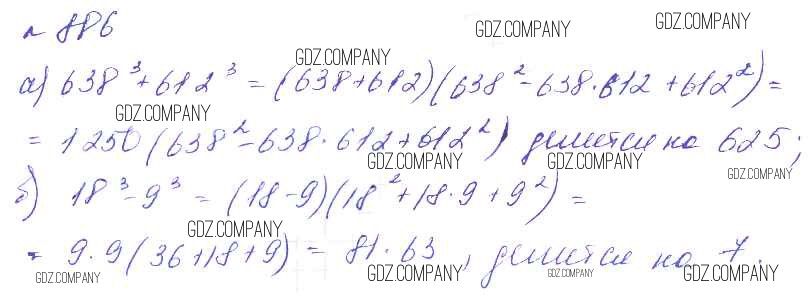 № 886
GDZ.COMPANY GDZ.COMPANY
GDZ.COMPANY
а) 638³ + 612³ = (638 + 612)(638² - 638·612 + 612²) =
GDZ.COMPANY
= 1250 (638² - 638·612 + 612²) делится на 625;
GDZ.COMPANY GDZ.COMPANY GDZ.COMPANY
б) 18³ - 9³ = (18 - 9)(18² + 18·9 + 9²) =
GDZ.COMPANY
= 9·9 (36 + 18 + 9) = 81·63, делится на 7.
GDZ.COMPANY GDZ.COMPANY GDZ.COMPANY GDZ.COMPANY